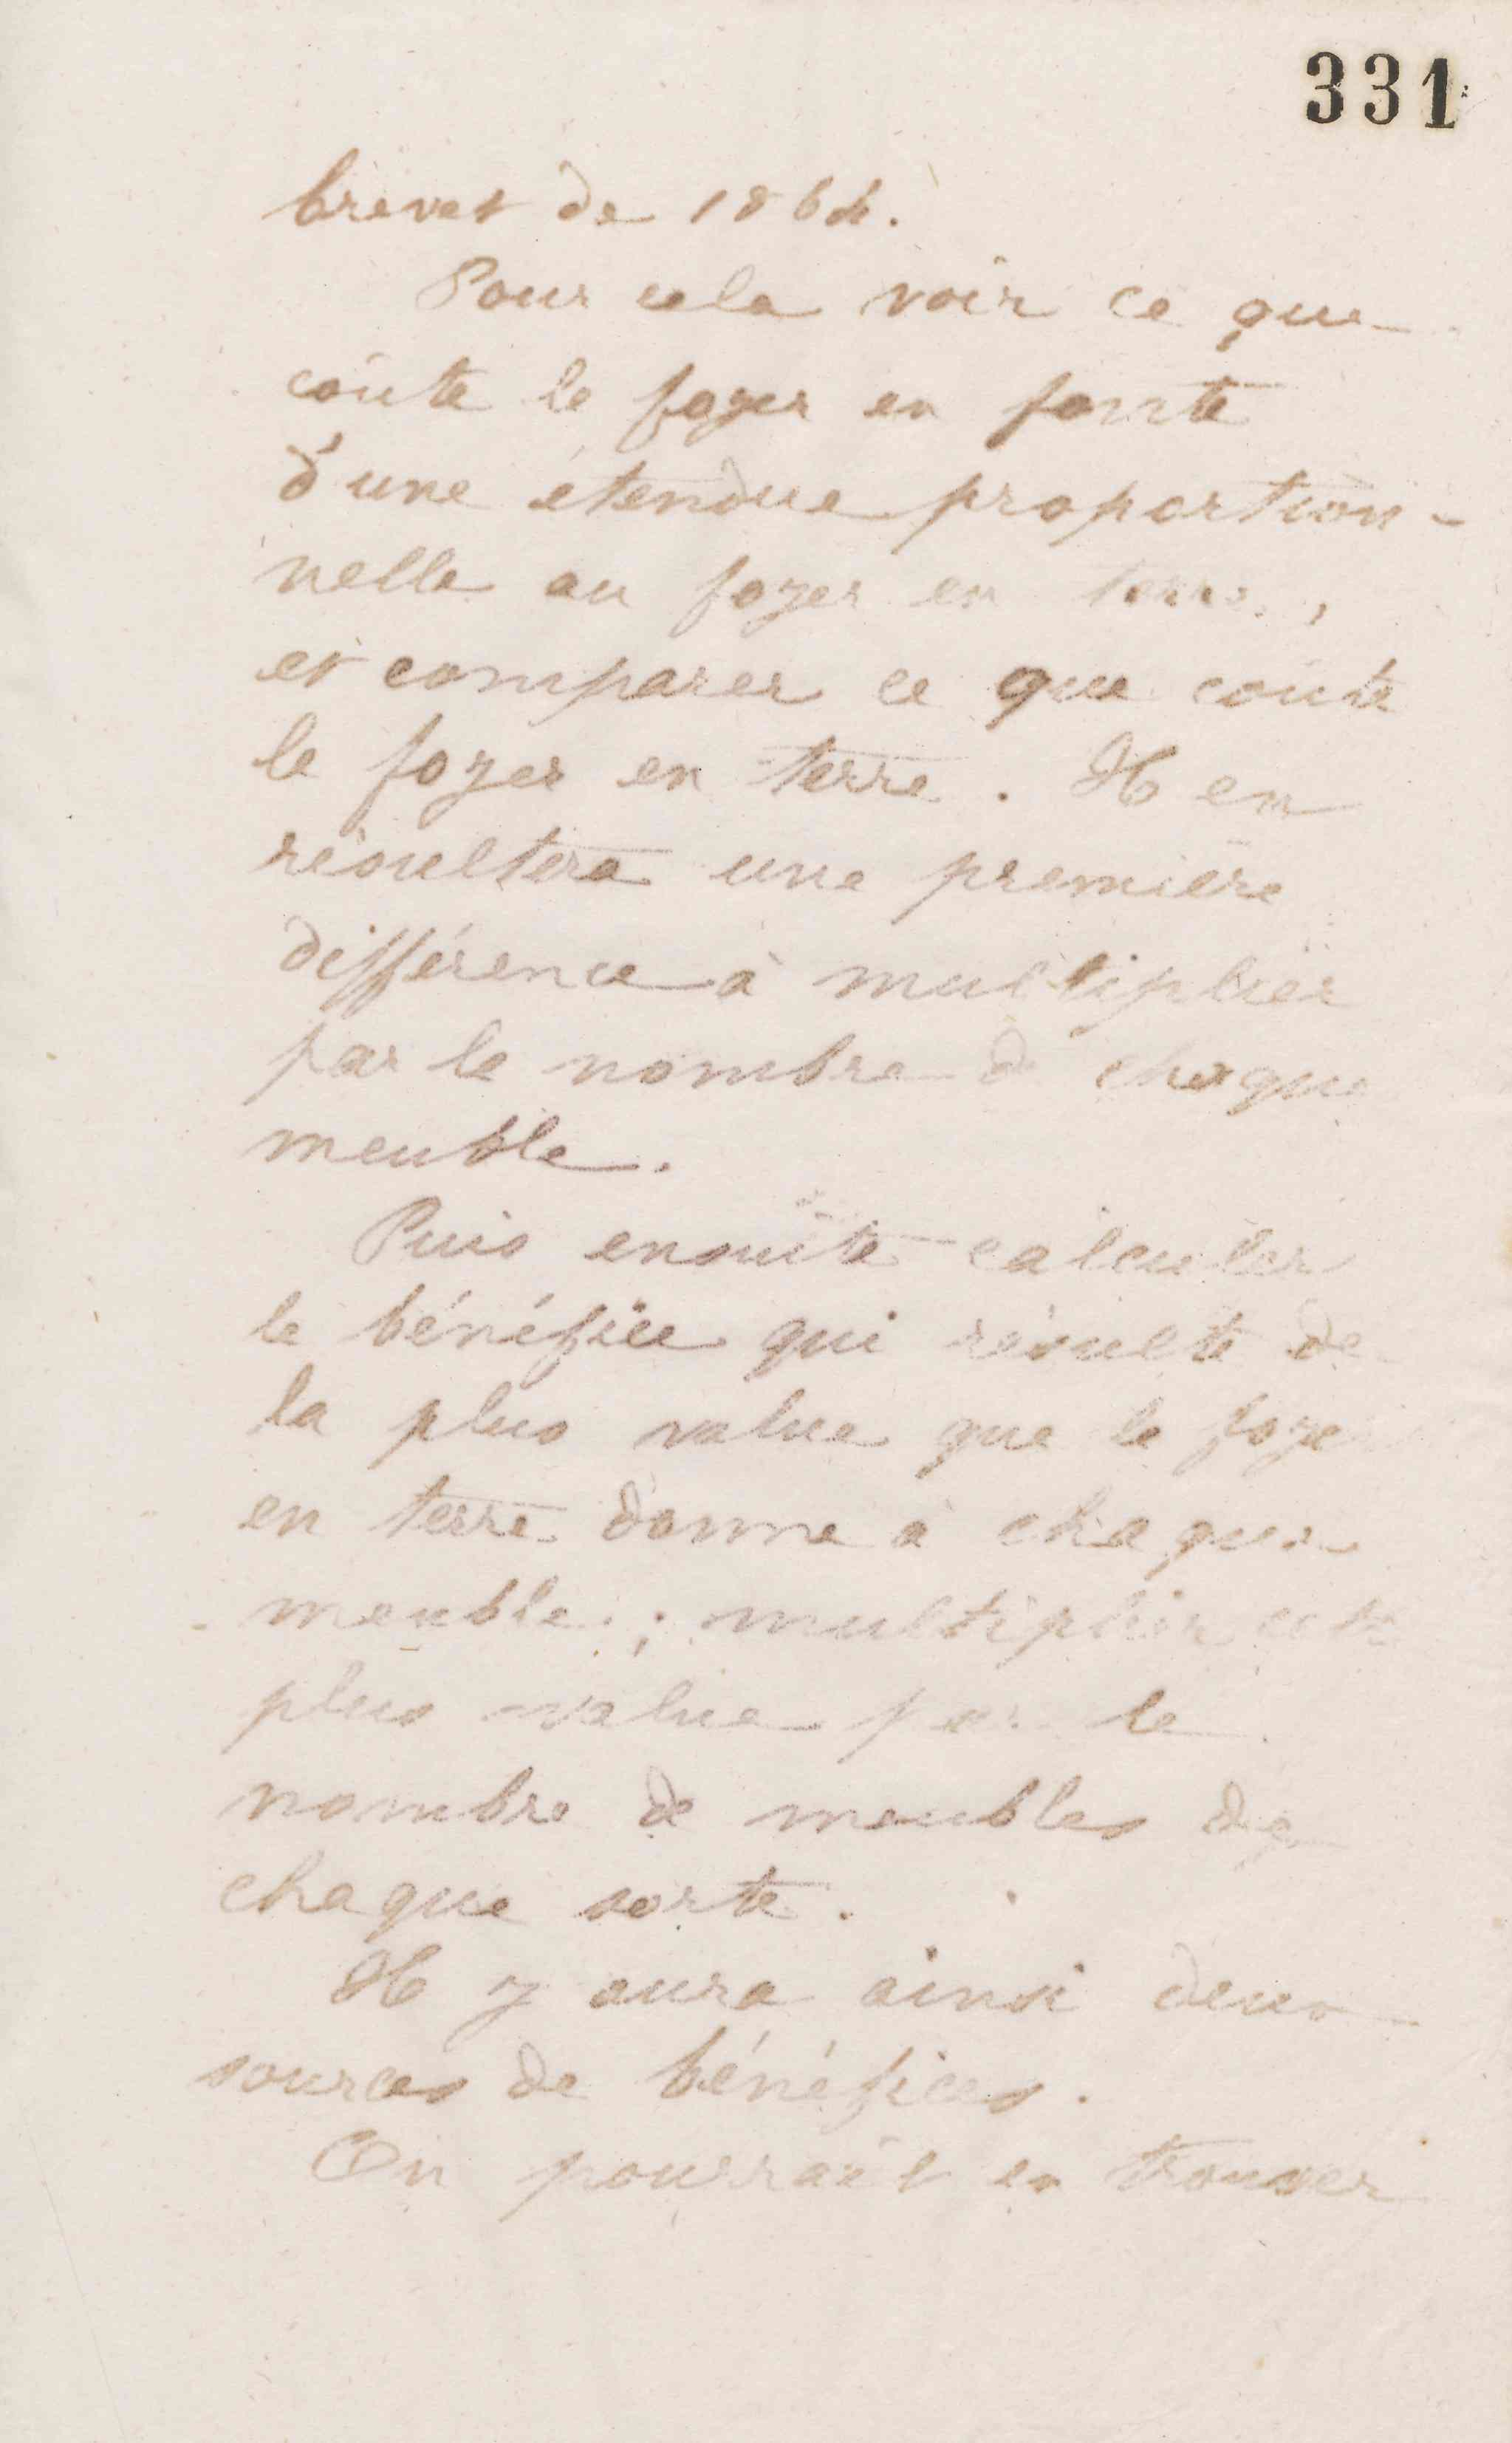 331
brevet de 1864.
Pour cela voir ce que
coûte le foyer en fonte
d'une étendue proportion-
nelle au foyer en terre,
et comparer ce que coûte
le foyer en terre. Il en
résultera une première
différence à multiplier
par le nombre de chaque
meuble.
Puis ensuite calculer
le bénéfice qui résulte de
la plus value que le foyer
en terre donne à chaque
meuble ; multiplier cette
plus value par le
nombre de meubles de
chaque sorte.
Il y aura ainsi deux
sources de bénéfices.
On pourrait en trouver